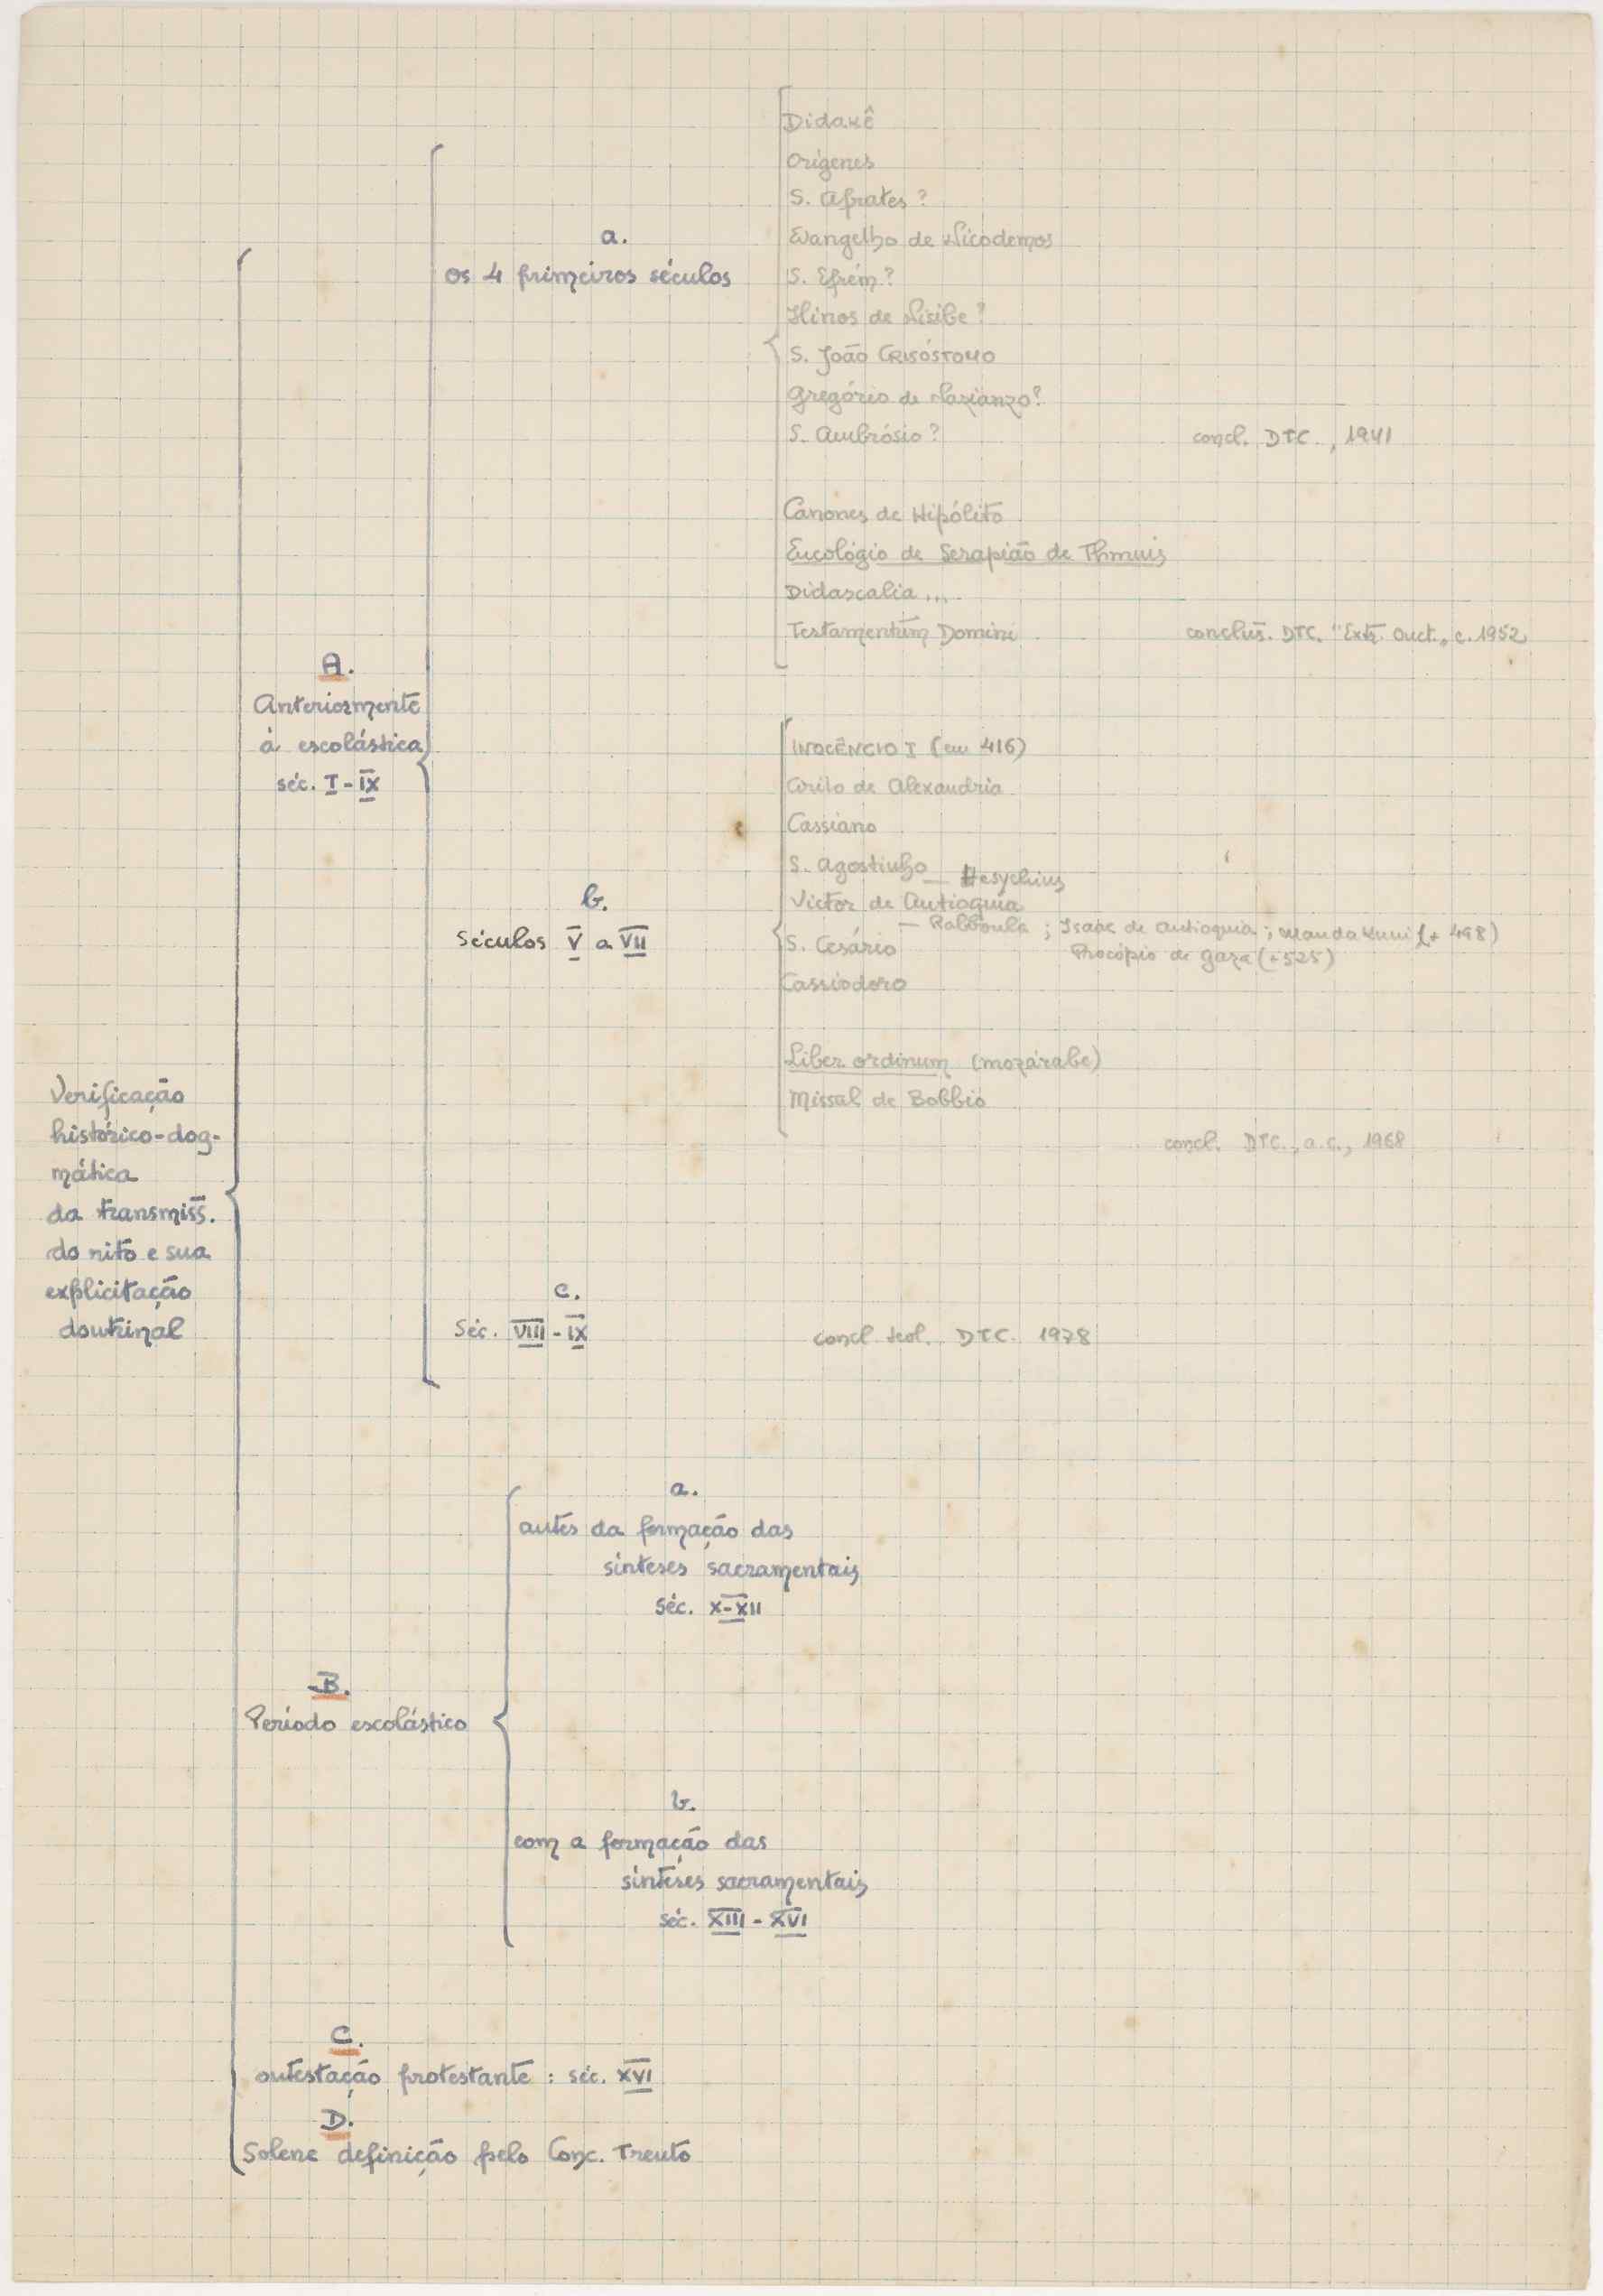 Verificação
histórico-dog-
mática
da transmiss.
do rito e sua
explicitação
doutrinal
A.
Anteriormente
à escolástica
séc. I - IX
a.
os 4 primeiros séculos
Didakê
Orígenes
S. Afrates ?
Evangelho de Nicodemos
S. Efrém ?
Hinos de Nisibe ?
S. João CRISÓSTOMO
Gregório de Nazianzo ?
S. Ambrósio ?
concl. DTC., 1941
Canones de Hipólito
Eucológio de Serapião de Thmuis
Didascalia ...
Testamentum Domini
conclus. DTC. "Extr. Onct., c. 1952
b.
Séculos V a VII
INOCÊNCIO I (em 416)
Cirilo de Alexandria
Cassiano
S. Agostinho
— Hesychius
Victor de Antioquia
— Rabboula ; Isaac de Antioquia ; Mandakuni (+ 498)
S. Cesário
Procópio de Gaza (+ 525)
Cassiodoro
Liber ordinum (mozárabe)
Missal de Bobbio
concl. DTC., a.c., 1968
c.
Séc. VIII - IX
concl teol. DTC. 1978
B.
Período escolástico
a.
antes da formação das
sínteses sacramentais
séc. X-XII
b.
com a formação das
sínteses sacramentais
séc. XIII - XVI
C.
ontestação protestante : séc. XVI
D.
Solene definição pelo Conc. Trento